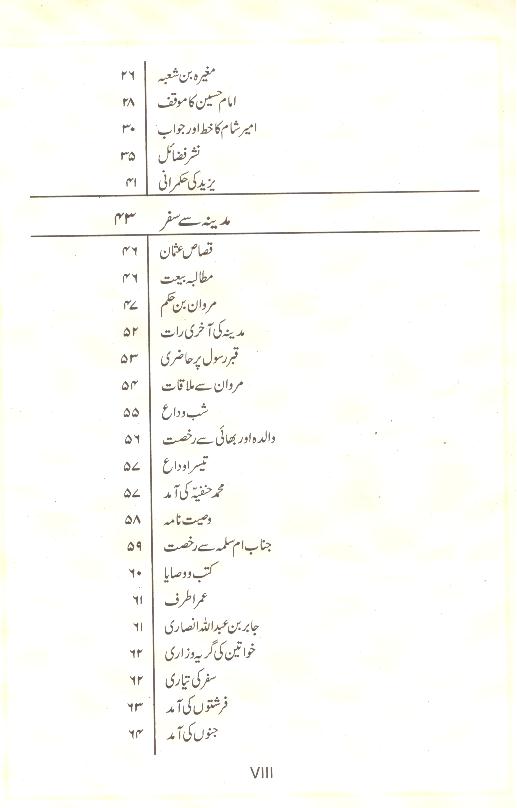 مغیرہ بن شعبہ ۲۶
امام حسین کا موقف ۲۸
امیر شام کا خط اور جواب ۳۰
نشر فضائل ۳۵
یزید کی حکمرانی ۴۱
مدینہ سے سفر ۴۳
قصاص عثمان ۴۶
مطالبہ بیعت ۴۶
مروان بن حکم ۴۷
مدینہ کی آخری رات ۵۲
قبر رسول پر حاضری ۵۳
مروان سے ملاقات ۵۴
شب وداع ۵۵
والدہ اور بھائی سے رخصت ۵۶
تیسرا وداع ۵۷
محمد حنفیہ کی آمد ۵۷
وصیت نامہ ۵۸
جناب ام سلمہ سے رخصت ۵۹
کتب و وصایا ۶۰
عمر اطرف ۶۱
جابر بن عبداللہ انصاری ۶۱
خواتین کی گریہ و زاری ۶۲
سفر کی تیاری ۶۲
فرشتوں کی آمد ۶۳
جنوں کی آمد ۶۴
VIII